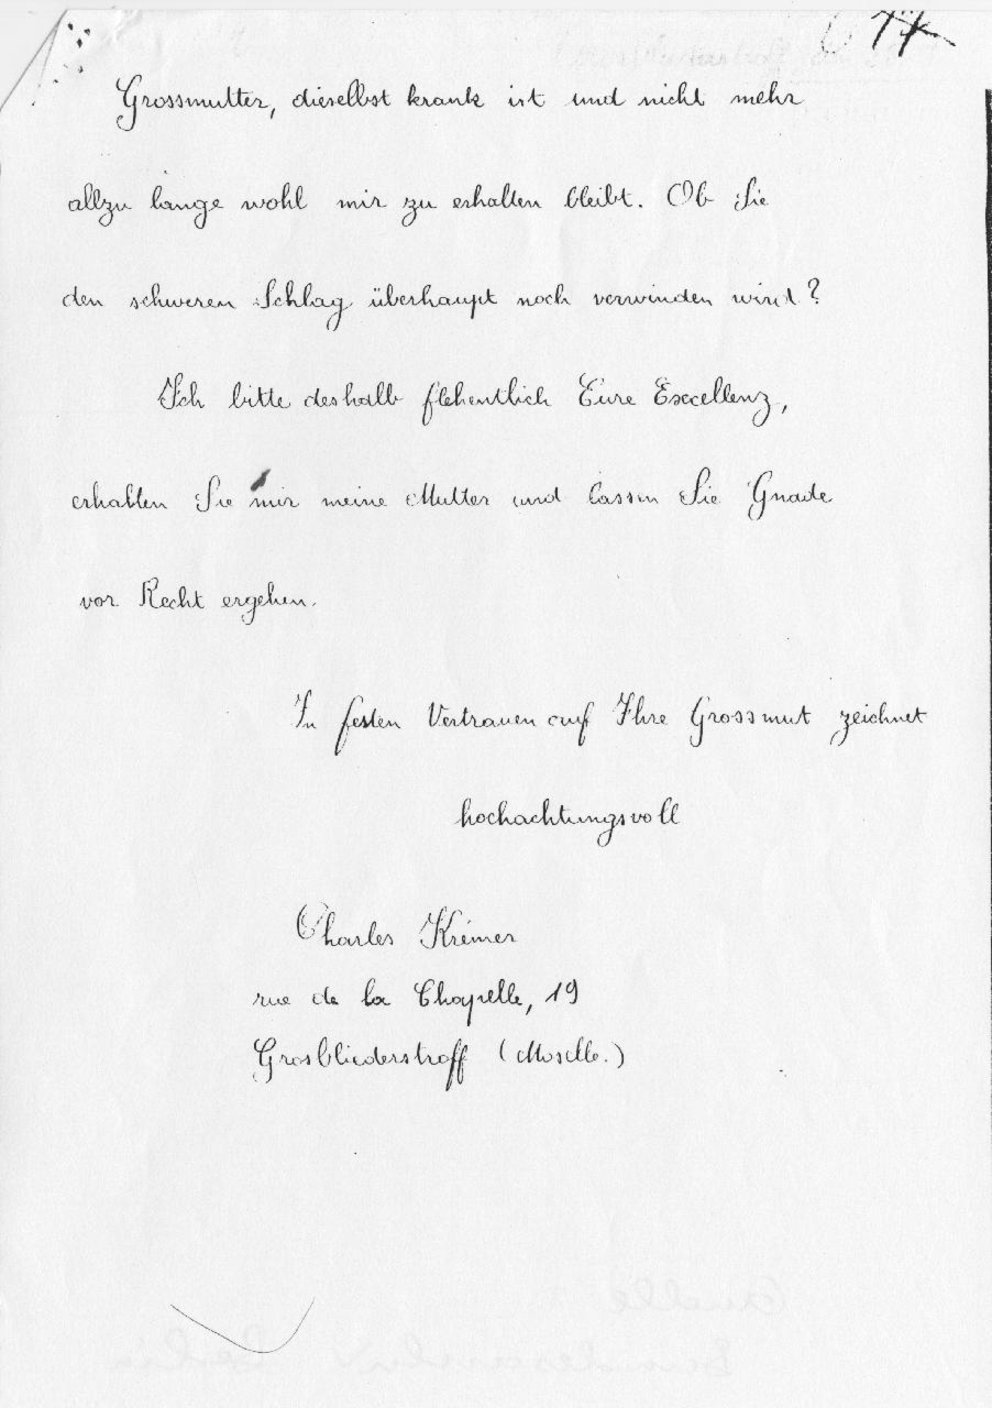 Grossmutter, dieselbst krank ist und nicht mehr
allzu lange wohl mir zu erhalten bleibt. Ob Sie
den schweren Schlag überhaupt noch verwinden wird?
Ich bitte deshalb flehentlich Eure Excellenz,
erhalten Sie mir meine Mutter und lassen Sie Gnade
vor Recht ergehen.
In festen Vertrauen auf Ihre Grossmut zeichnet
hochachtungsvoll
Charles Krémer
rue de la Chapelle, 19
Grosbliederstroff (Moselle.)